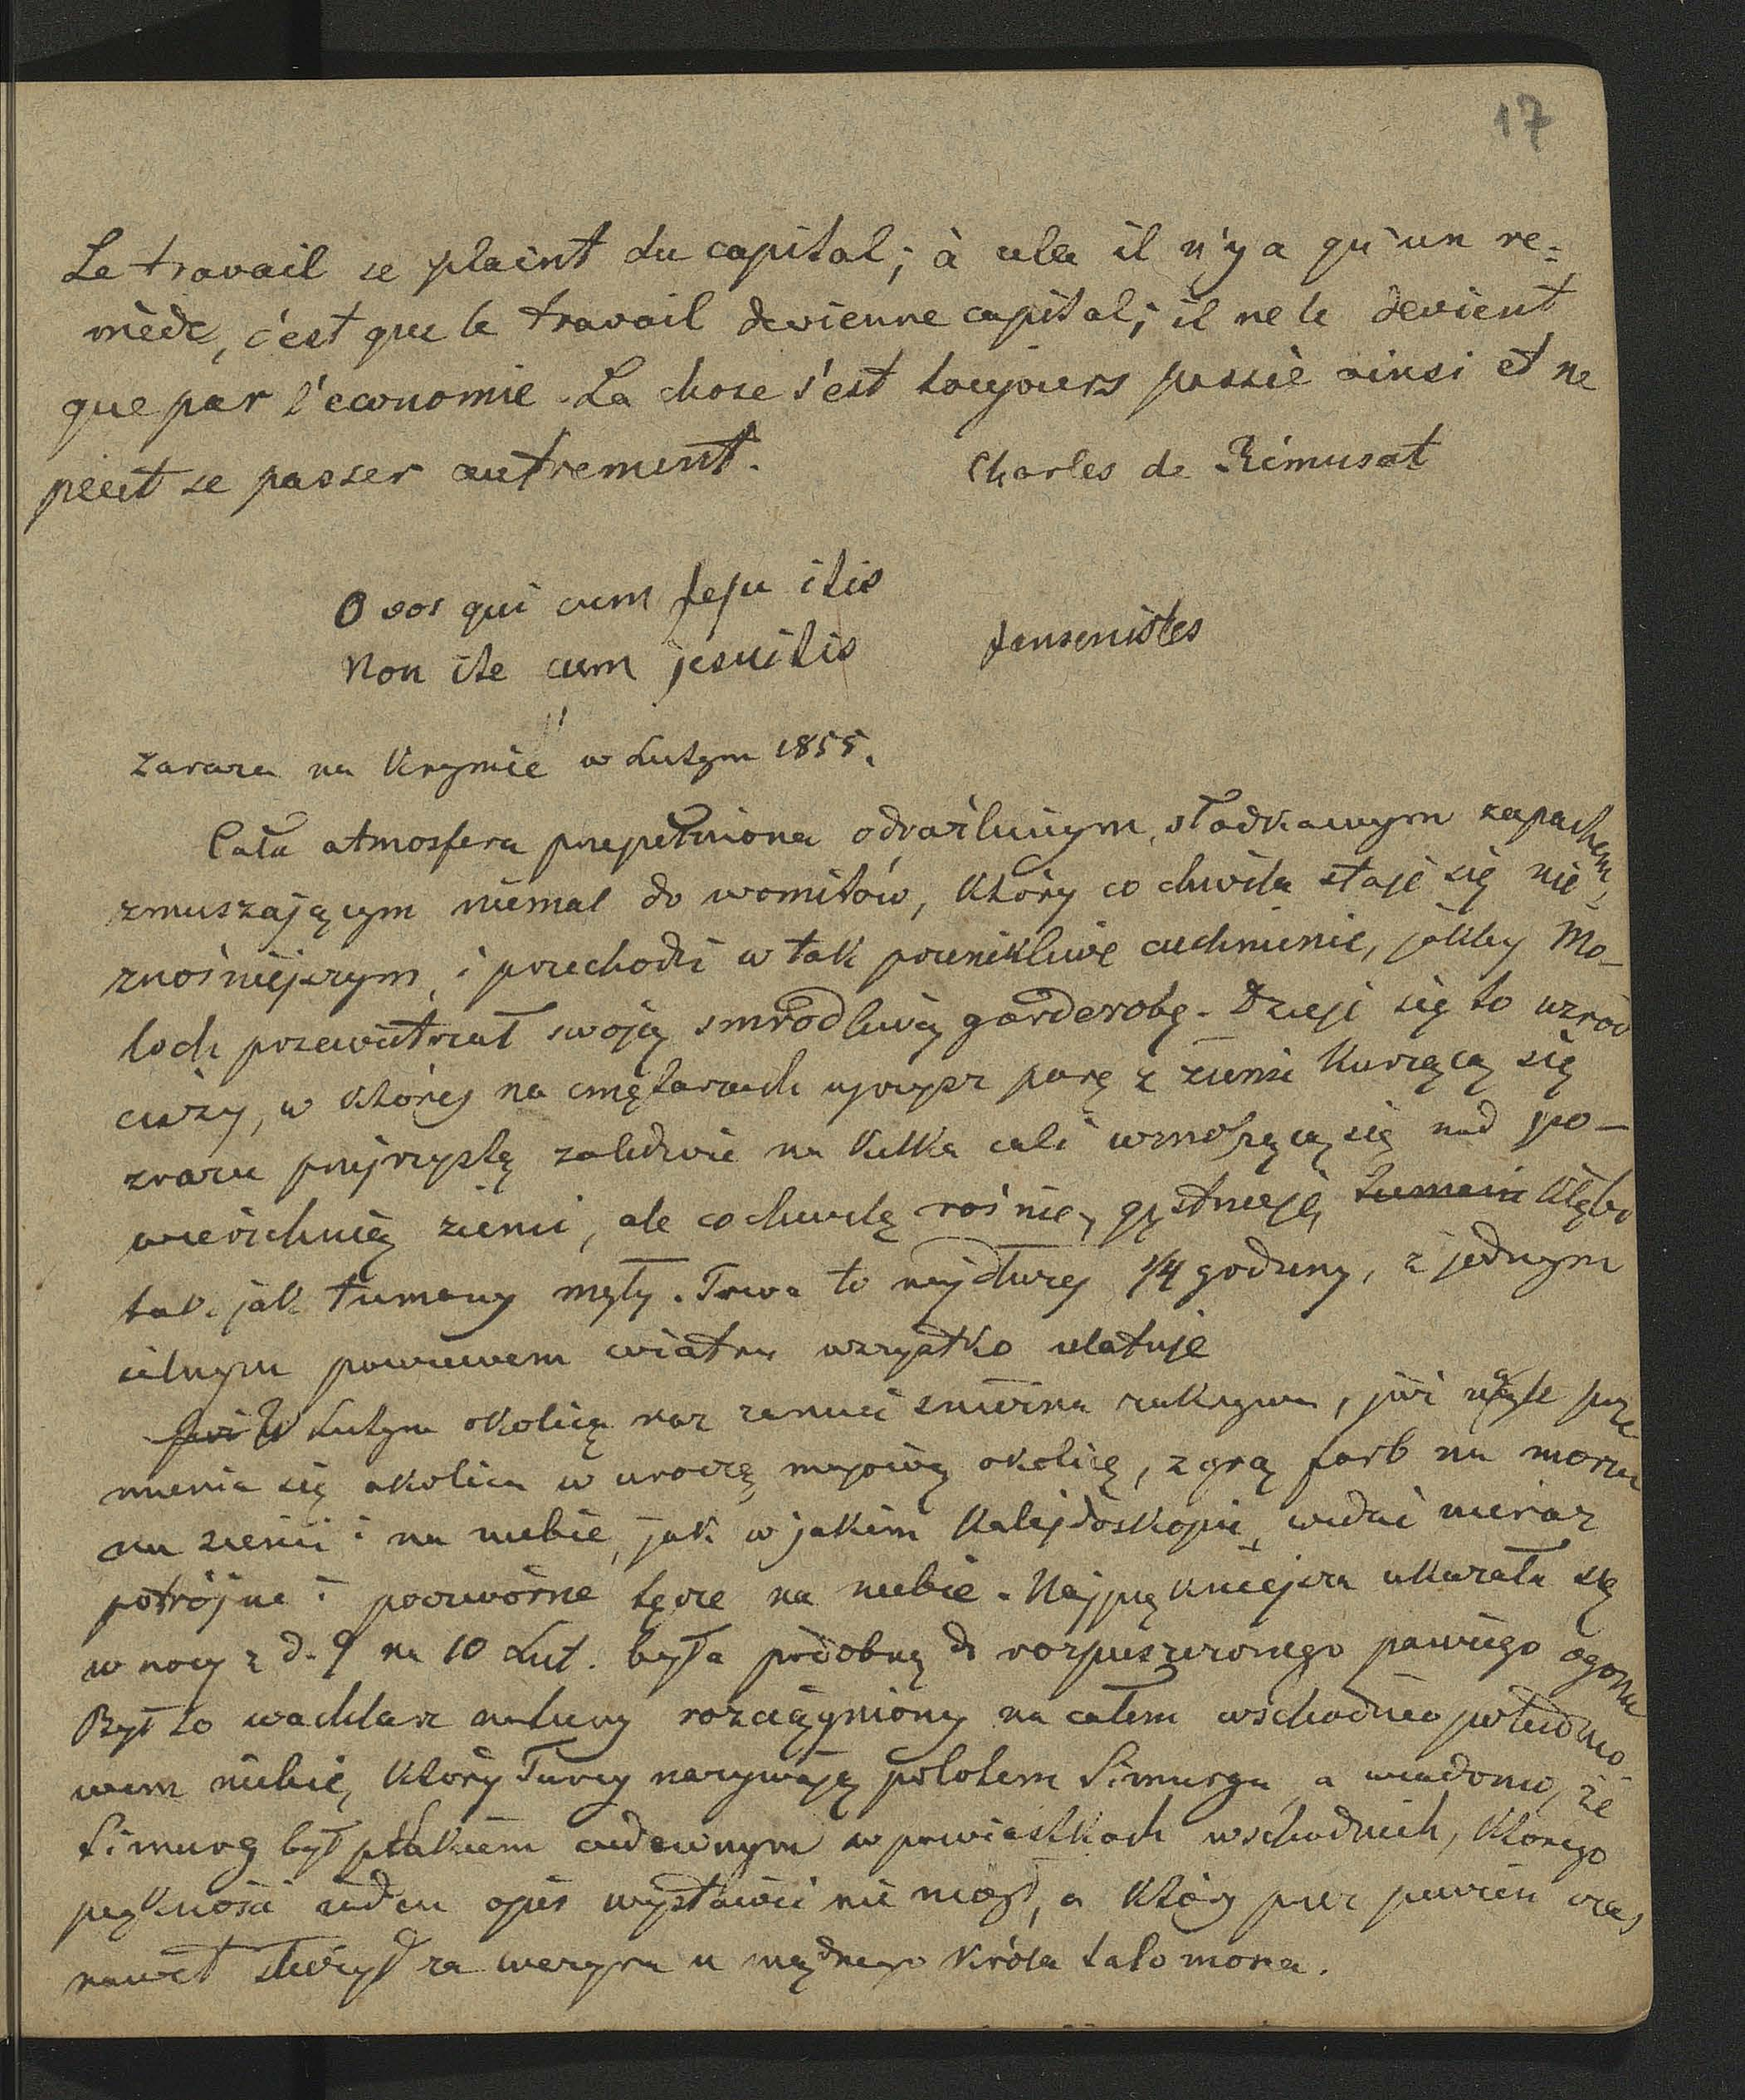 17
Le travail se plaint du capital; à cela il n'y a qu'un re=
mède, c'est que le travail devienne capital; il ne le devient
que par l'economie. La chose s'est toujours passiè ainsi et ne
peut se passer autrement. Charles de Rémusat
O vos qui cum Jesu itis
Non ite cum jesuitis Jansenistes
Zaraza na Krymie w Lutym 1855.
Cała atmosfera przepełniona odraźliwym, słodkawym zapachem,
zmuszającym niemal do womitów, który co chwila staje się nie
znośniejszym, i przechodzi w tak przenikliwe cuchnienie, jakby Mo-
loch przewietrzał swoją smrodliwą garderobę. Dzieje się to wśród
ciszy, w której na cmętarzach ujrzysz parę z ziemi kurzącą się
zrazu przejrzystą zaledwie na kilka cali wznoszącą się nad po-
wierzchnię ziemi, ale co chwilę rośnie, gęstnieje, tumani kłębi
tak jak tumany mgły. Trwa to najdłużej 1/4 godziny, z jednym
silnym powiewem wiatru wszystko ulatuje
Już W Lutym okolicę raz zamieć śnieżna zakrywa, już prze
mienia się okolica w uroczą majową okolicę, z grą farb na morzu
na ziemi i na niebie, jak w jakim kalejdoskopie, widzieć nieraz
potrójne i poczwórne tęcze na niebie. Najpiękniejsza ukazała się
w nocy z d. 9 na 10 Lut. była podobną do rozpuszczonego pawiego ogona
Był to wachlarz natury rozciągniony na całem wschodnio południo-
wem niebie, który Turcy nazywają polotem Simurga, a wiadomo, że
Simurg był ptakiem cudownym w powiastkach wschodnich, którego
piękności żaden opis wystawić nie mógł, a który przez pewien czas
nawet służył za wezyra u mądrego króla Salomona.